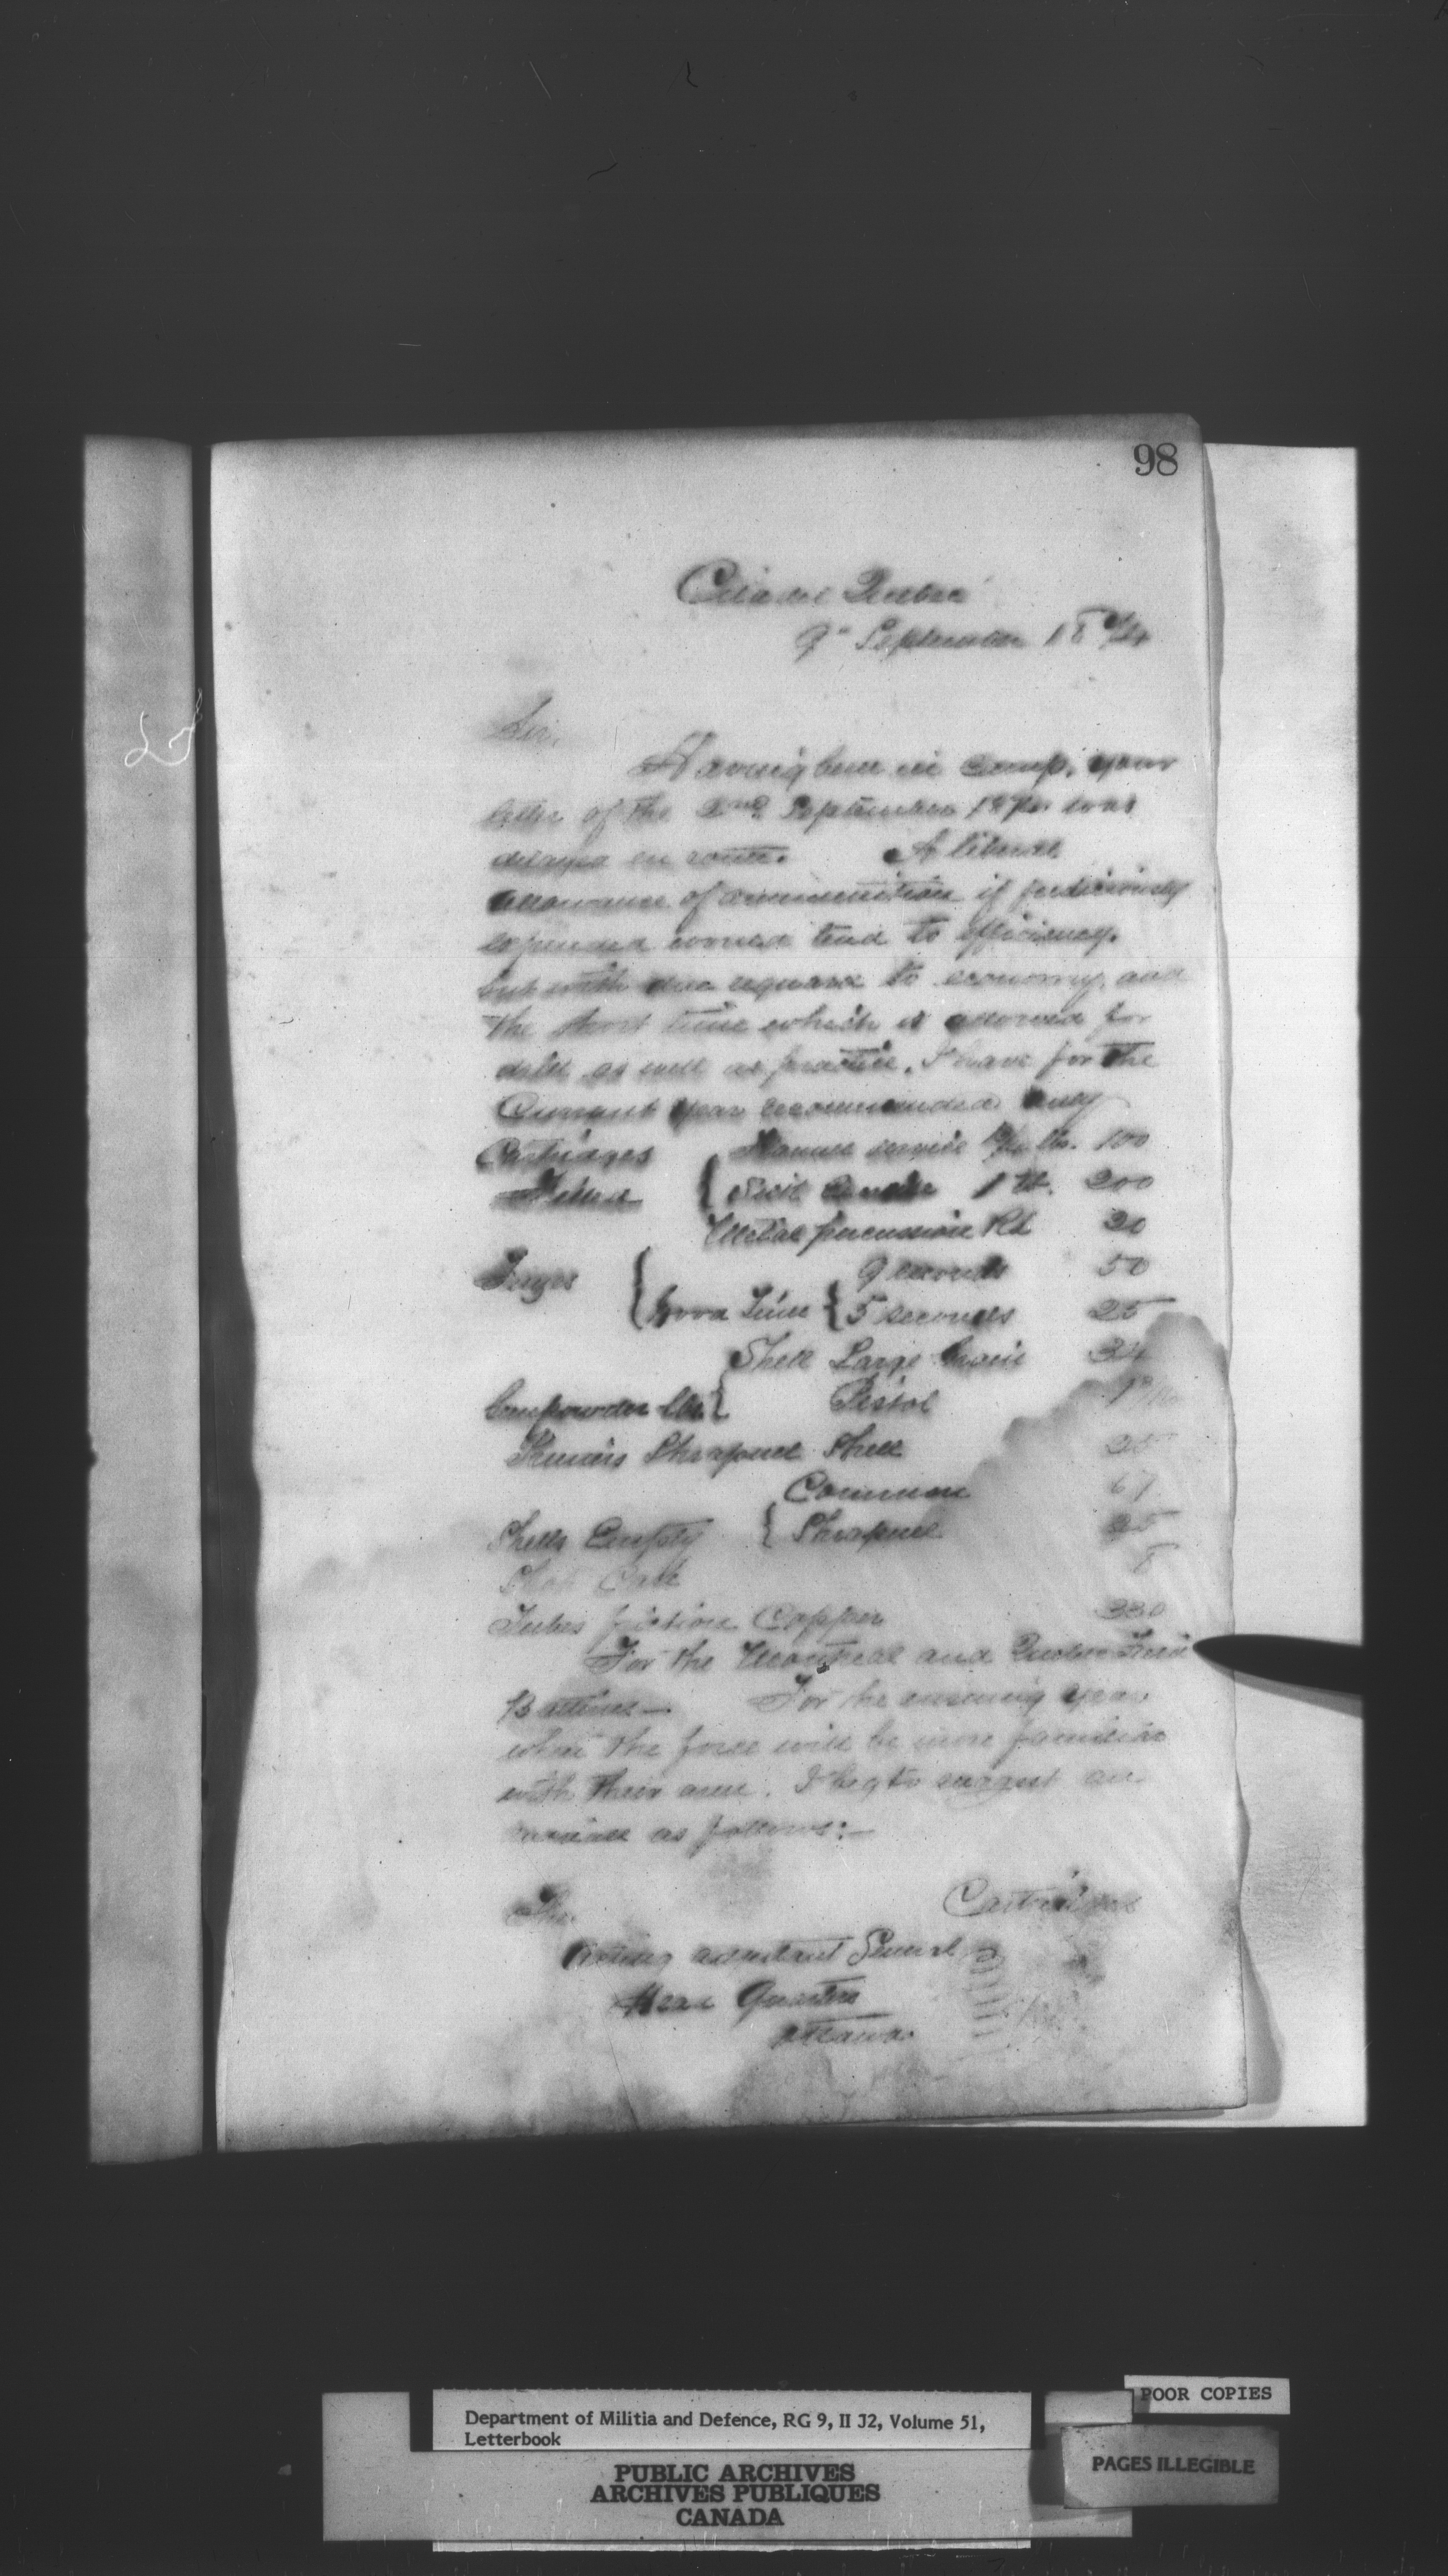 98
Citadel Quebec
9th September 18
Sir,
Having been in camp, your
letter of the 2nd September was
delayed en route. A liberal
allowance of ammunition if judiciously
expended would tend to efficiency.
but with due reguard to economy, and
the short time which is allowed for
drill as well as practice, I have for the
Current year recommended only
Cartridges { service lb. 100
Filled { 1 lb. 200
Metal percussion 30
Fuzes { 9 seconds 50
{ Wood Time { 5 seconds 25
Shell Large Grain
Gunpowder lbs { Pistol
Primers Shrapnel Shell
Common 67
Shells Empty { Shrapnel 25
Shot Case 8
Tubes friction Copper 330
For the Montreal and Quebec Field
Batteries — For the ensuing year
when the force will be more familiar
with their arm, I beg to suggest an
increase as follows:—
Cartridges
The
Acting Adjutant General
Head Quarters
Ottawa.
POOR COPIES
Department of Militia and Defence, RG 9, II J2, Volume 51,
Letterbook
PAGES ILLEGIBLE
PUBLIC ARCHIVES
ARCHIVES PUBLIQUES
CANADA